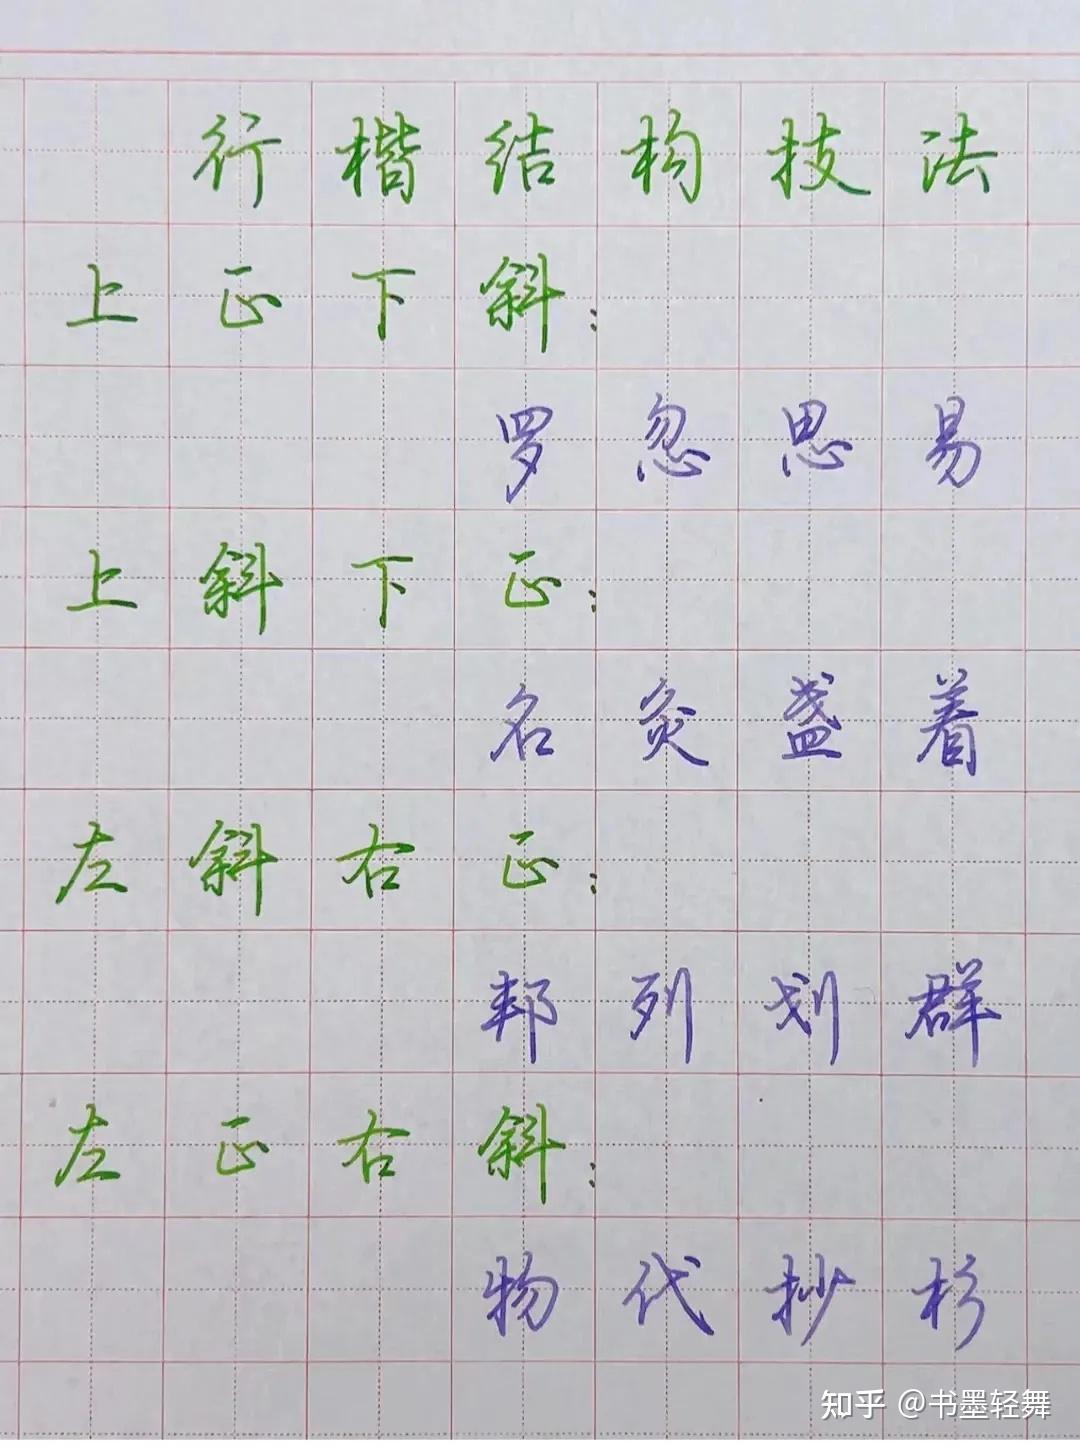 行楷结构技法
上正下斜：
罗忽思易
上斜下正：
名灸盏着
左斜右正：
邦列划群
左正右斜：
物代抄杉
知乎 @书墨轻舞